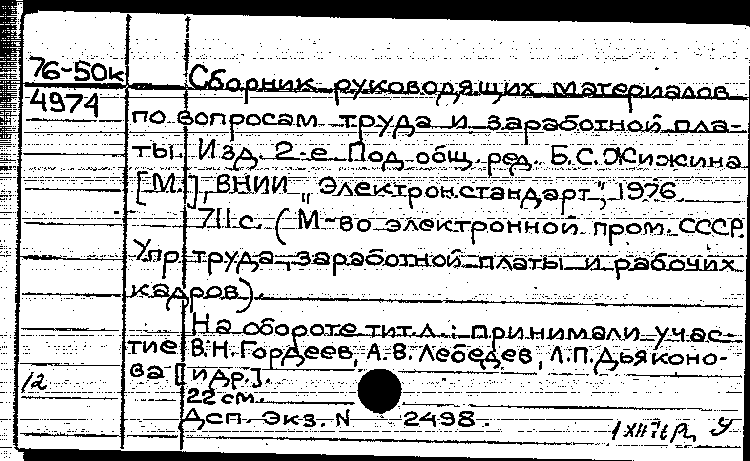 76-50к Сборник руководящих материалов
4974 по вопросам труда и заработной пла-
ты. Изд. 2-е. Под общ. ред. Б.С. Жижина
[М.], ВНИИ „Электронстандарт", 1976.
711 с. (М-во электронной пром. СССР.
Упр. труда, заработной платы и рабочих
кадров).
На обороте тит. л.: принимали учас-
тие В.Н. Гордеев, А.В. Лебедев, Л.П. Дьяконо-
ва [и др.].
12
22 см.
Дсп. Экз. N 2498.